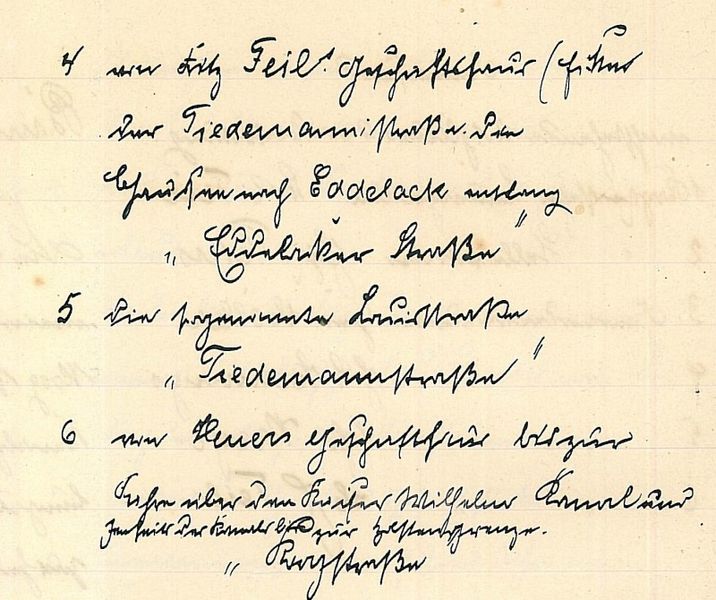 4 von Fritz Feil's Geschäftshaus (hinter
der Tiedemannstraße. die
Chaussee nach Eddelack entlang
„ Eddelaker Straße "
5 die sogenannte Lauisstraße
„ Tiedemannstraße "
6 von Heuers Geschäfthaus bis zur
Fähre über den Kaiser Wilhelm Kanal und
jenseits der Kanals bis zur Holstengrenze.
„ Kogstraße